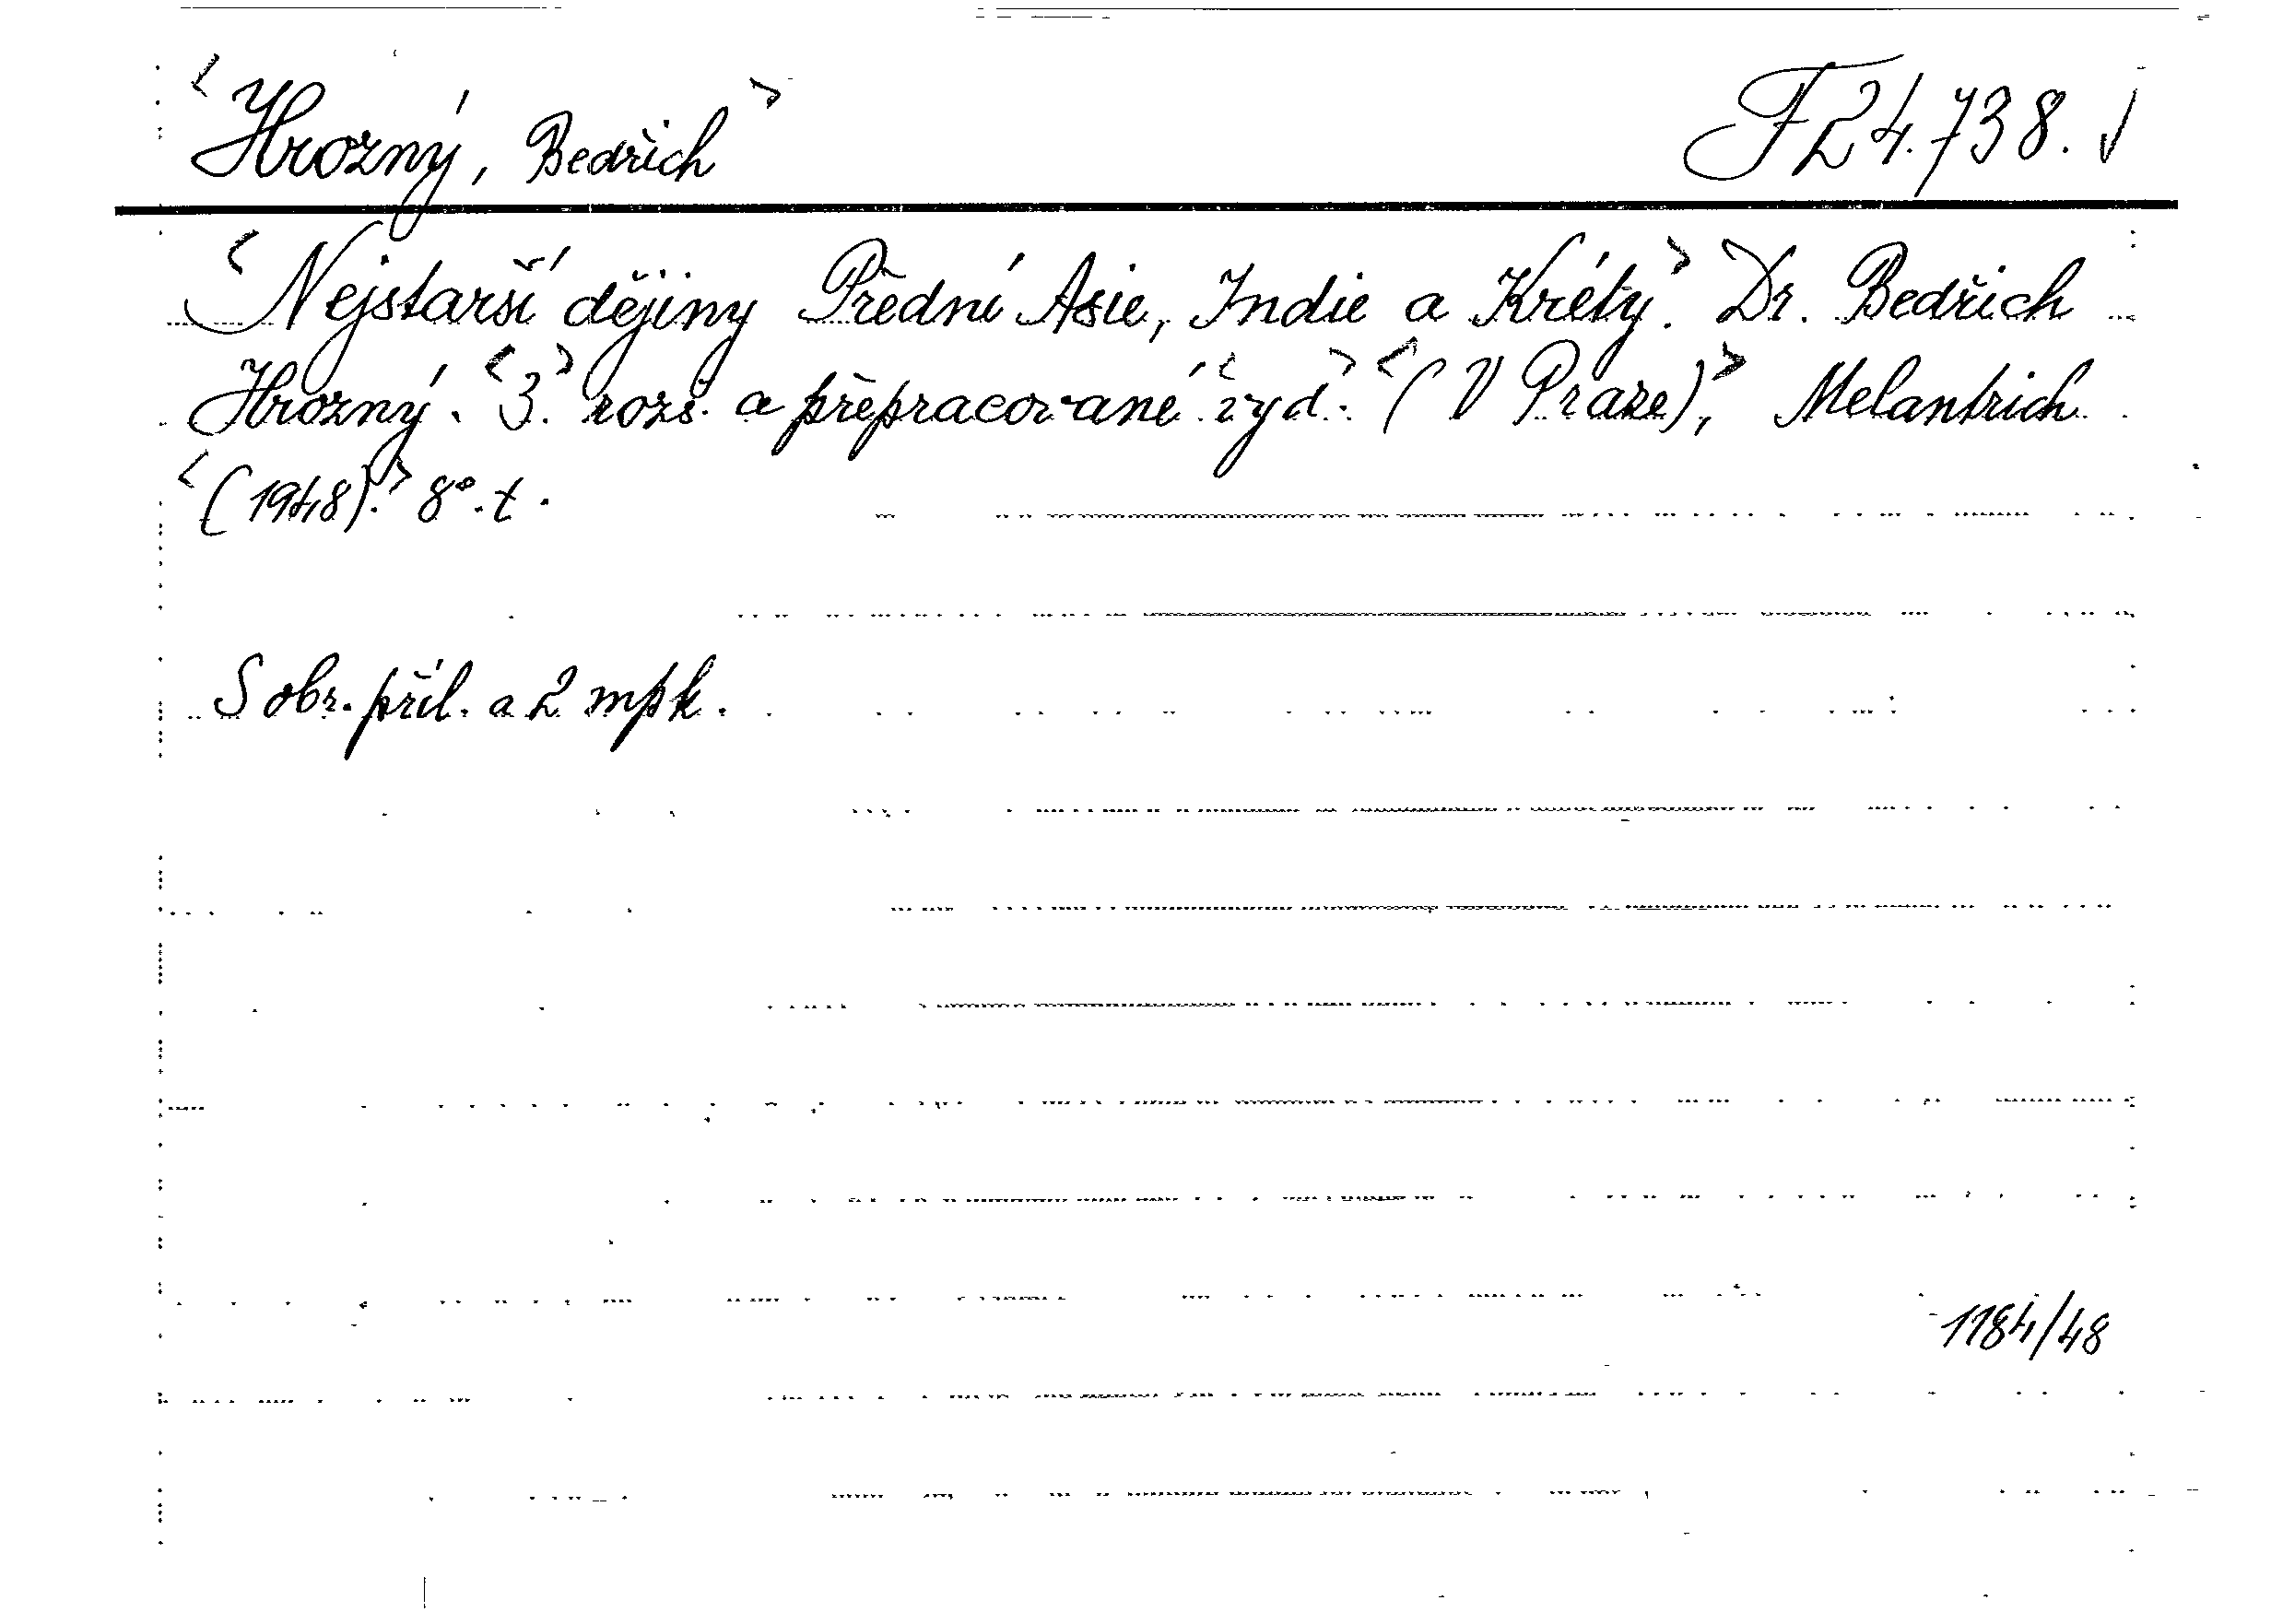 <Hrozný, Bedřich> F 24.738. √
<Nejstarší dějiny Přední Asie, Indie a Kréty.> Dr. Bedřich
Hrozný. <3.> rozš. a přepracované <vyd.> <(V Praze),> Melantrich
<(1948).> 8°. t.
S obr. příl. a 2 mpk.
1184/48